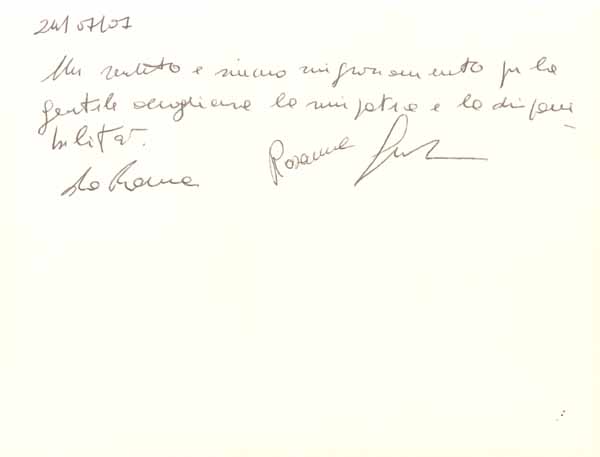 24/07/07
Un sentito e sincero ringraziamento per la
gentile accoglienza la simpatia e la disponi
bilità.
da Roma Rosanna